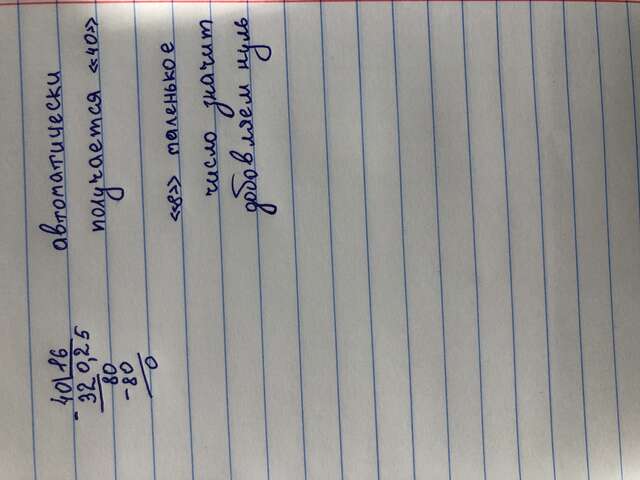 40 16 автоматически
- 32 0,25 получается «40»
80
- 80 «8» маленькое
0 число значит
добовляем нуль